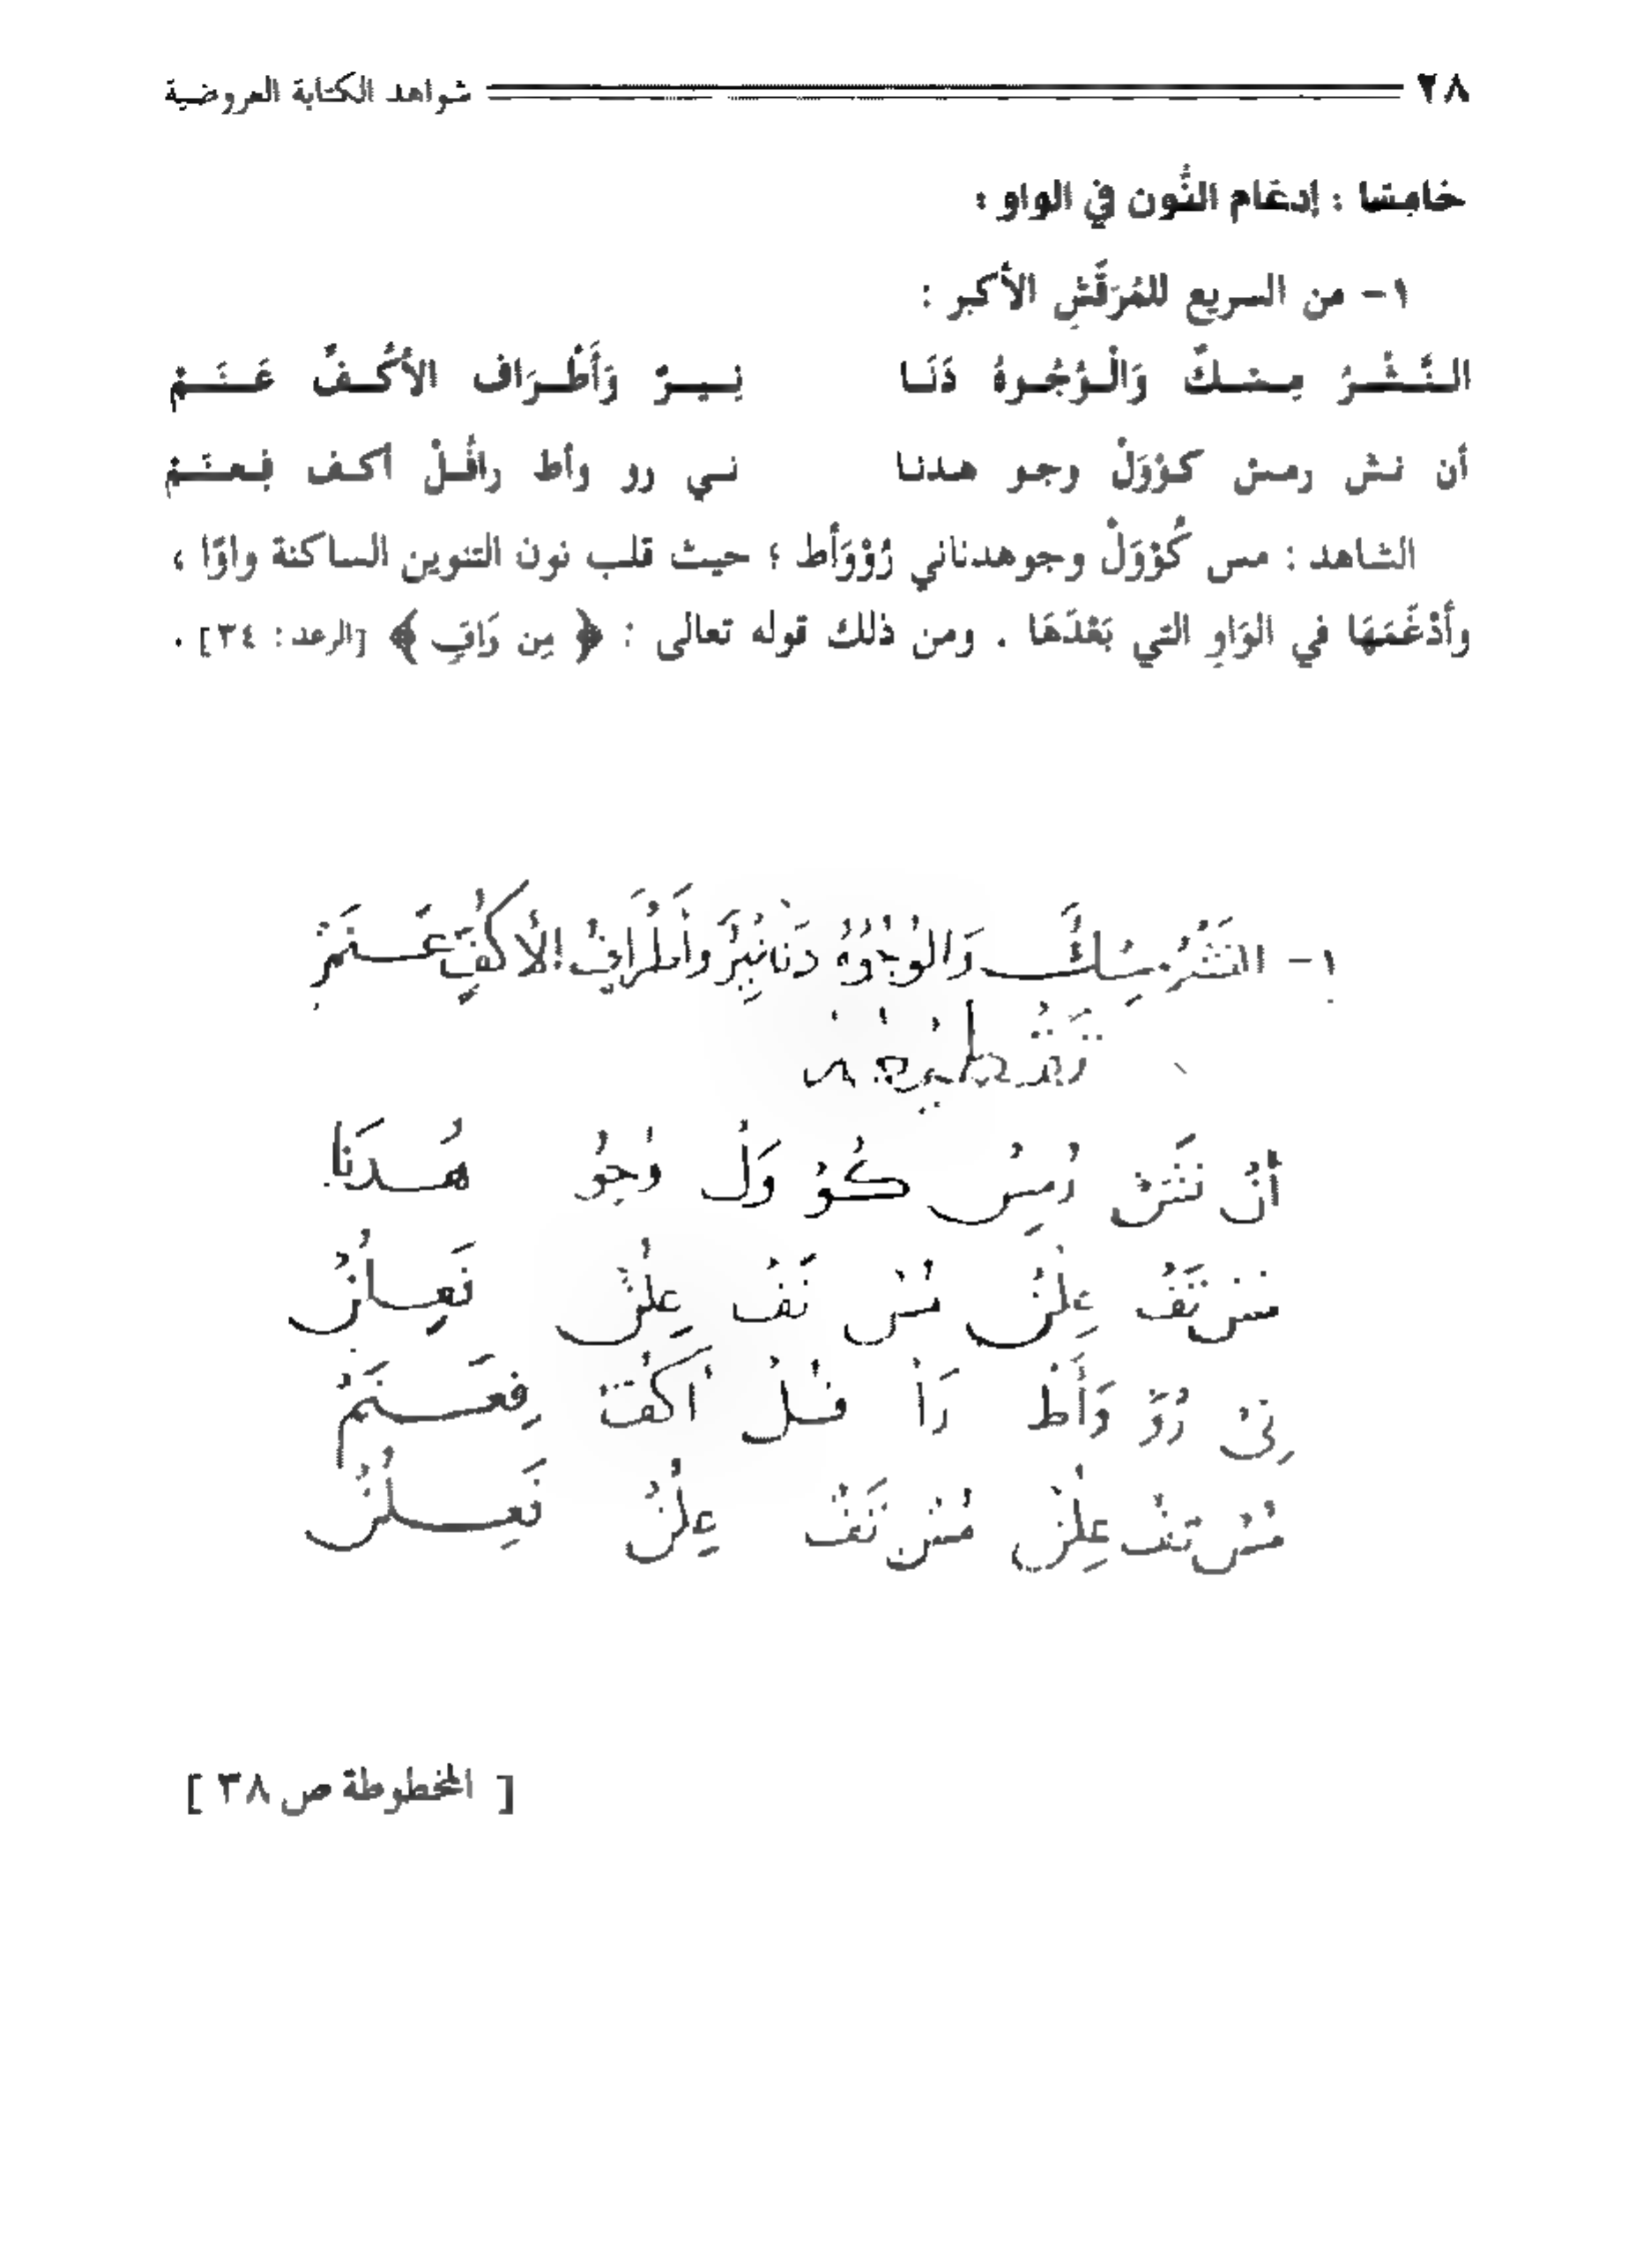 ٢٨ شواهد الكتابة العروضية
خامِسًا : إدغَام النُّون في الواو :
١- من السريع للمُرَقِّشِ الأكبر :
النَّشْرُ مِسْكٌ وَالْوُجُوهُ دَنَا نِيرٌ وَأَطْرَاف الأَكُفِّ عَنَمْ
أن نش رمس كوْوَلْ وجو هدنا ني رو وأط رافُلْ أكف فِعنَمْ
الشاهد : مس كُوْوَلْ وجوهدناني رُوْوَأط ؛ حيث قلب نون التنوين الساكنة واوًا ،
وأدْغَمَهَا في الوَاوِ التي بَعْدَهَا . ومن ذلك قوله تعالى : ﴿ مِن وَاقٍ ﴾ [الرعد : ٣٤] .
١- النَشْرُ مِسْكٌ وَالوُجُوْهُ دَنَانِيْرٌ وأَطْرَافُ الأَكُفِّ عَنَمْ
تَقْطِيْعُهُ
أنْ نَشْ رُمِسْ كُوْ وَلْ وُجُوْ هُدَنَا
مُسْ تَفْ عِلُنْ مُسْ تَفْ عِلُنْ فَعِلُنْ
نِيْ رُوْ وَأَطْ رَاْ فُلْ أَكُفْ فِعَنَمْ
مُسْ تَفْ عِلُنْ مُسْ تَفْ عِلُنْ فَعِلُنْ
[ المخطوطة ص ٣٨ ]